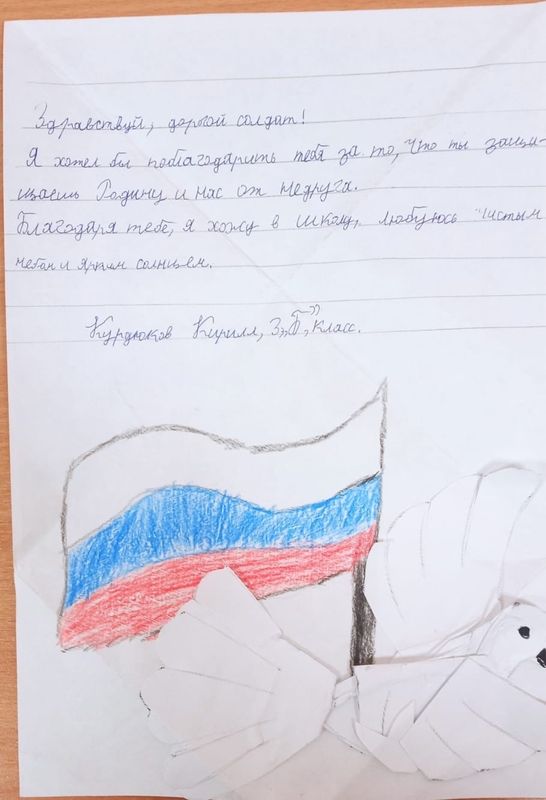 Здравствуй, дорогой солдат!
Я хотел бы поблагодарить тебя за то, что ты защи-
щаешь Родину и нас от недруга.
Благодаря тебе, я хожу в школу, любуюсь чистым
небом и ярким солнцем.
Курдюков Кирилл, 3 „Б” класс.